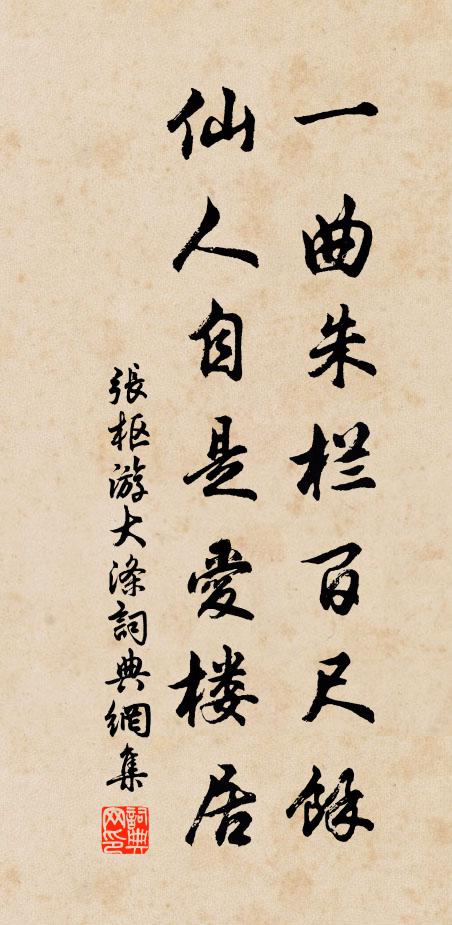 一曲朱栏百尺餘
仙人自是愛楼居
張枢游大滌詞典網集
詞典网印